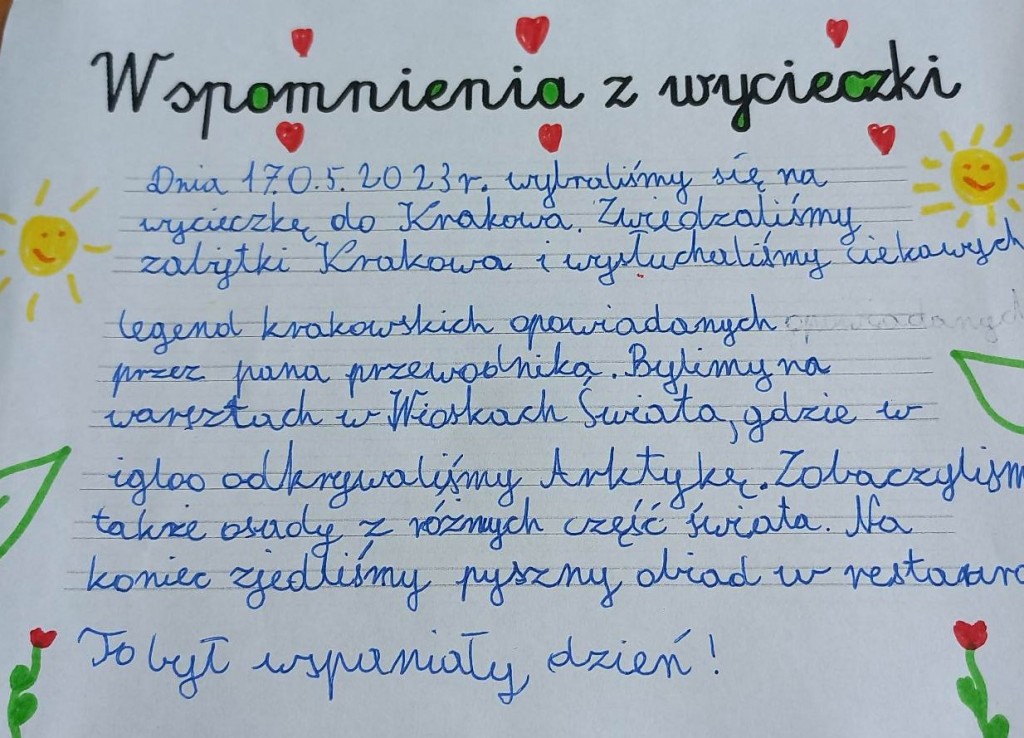 Wspomnienia z wycieczki
Dnia 17.0.5.2023r. wybraliśmy się na
wycieczkę do Krakowa. Zwiedzaliśmy
zabytki Krakowa i wysłuchaliśmy ciekawych
legend krakowskich opowiadanych opowiadanych
przez pana przewodnika. Bylimy na
warsztach w Wioskach Świata, gdzie w
igloo odkrywaliśmy Arktykę. Zobaczyliśm
także osady z różnych część świata. Na
koniec zjedliśmy pyszny obiad w restaura
To był wspaniały dzień!